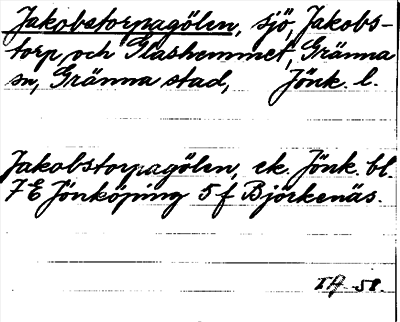 Jakobstorpagölen, sjö, Jakobs-
torp och Glashemmet, Gränna
sn, Gränna stad, Jönk. l.
Jakobstorpagölen, ek. Jönk. bl.
7 E Jönköping 5 f Björkenäs.
58.